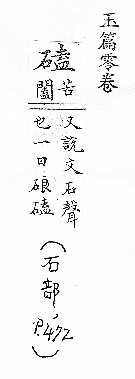 玉篇零卷
磕苦闔又說文石聲
也一曰硠磕
(石部,
P.472)